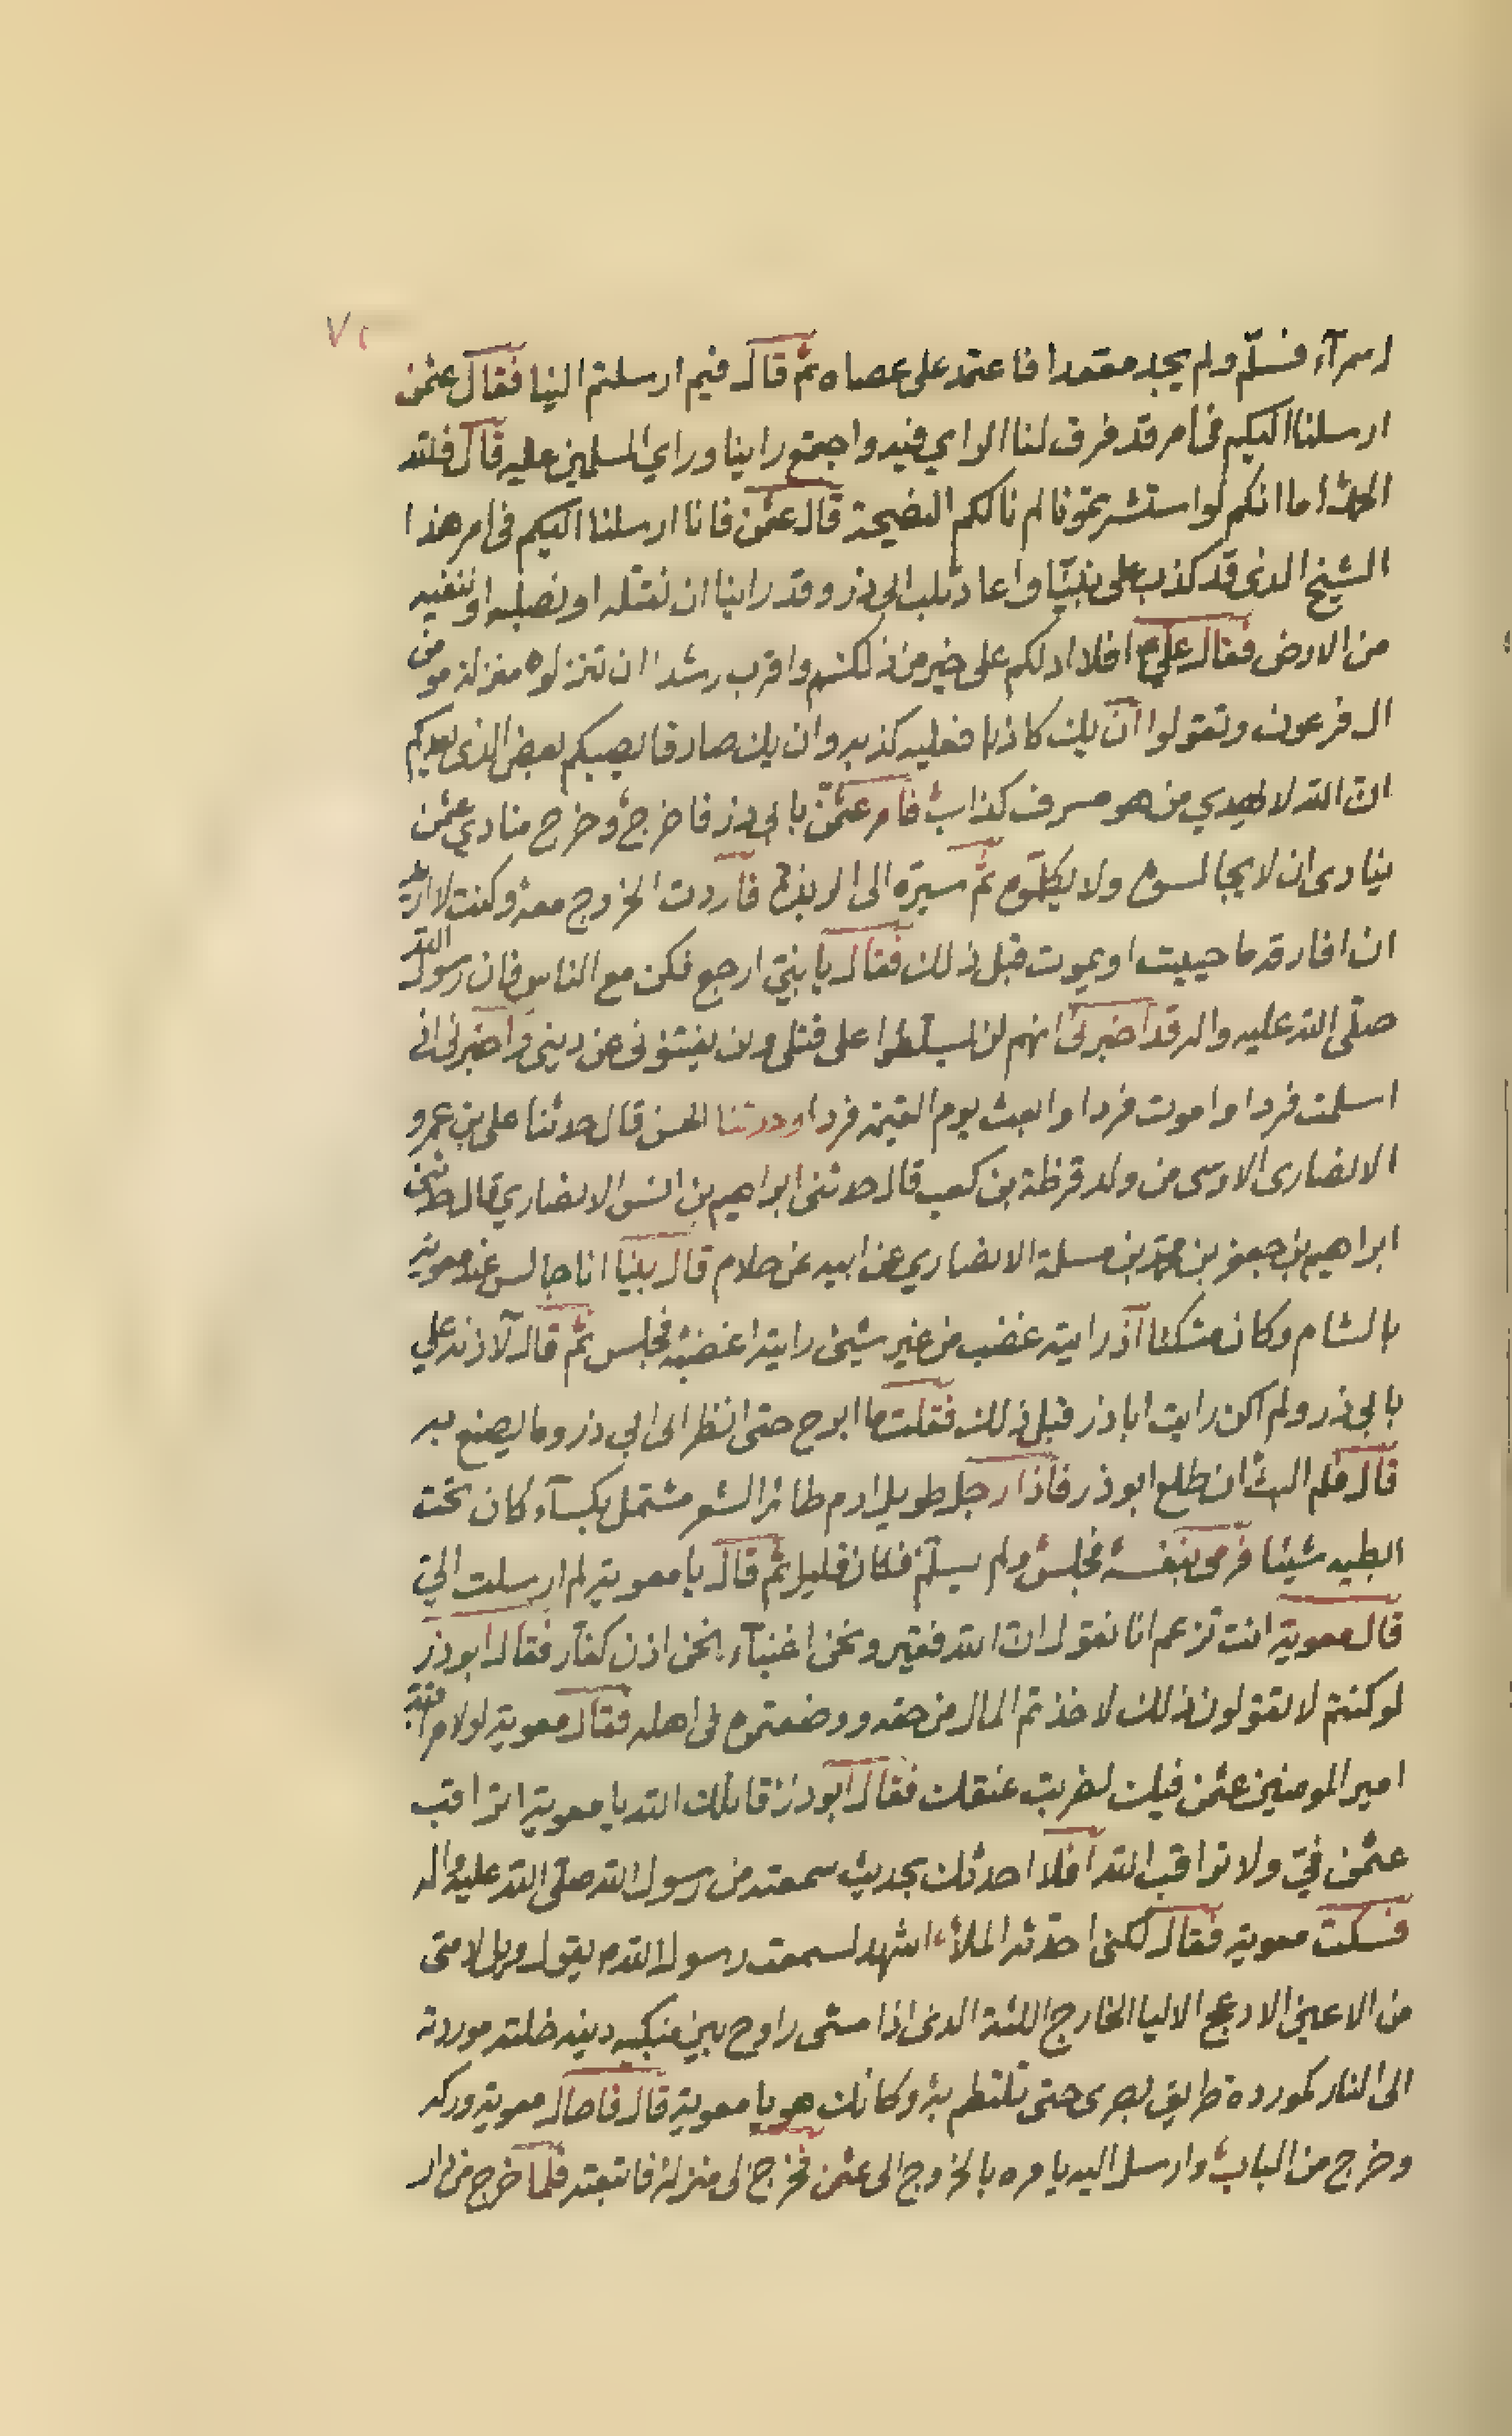 ٧٢
اسرآء فسلّم ولم يجد مقعدا فاعتمد على عصاه ثم قال فيم ارسلتم الينا فقال عثمن
ارسلنا اليكم فى امر قد فرق لنا الراي فيه واجتمع راينا وراي المسلمين عليه قال فلله
الحمد اما انكم لو استشرتمونا لم نالكم النصيحة قال عثمن فانا ارسلنا اليكم فى امر هذا
الشيخ الذى قد كذب على نبيّنا و ابى ذر وقد راينا ان نقتله او نصلبه او ننفيه
من الارض فقال علي ع افلا ادلكم على خير من ذلكم واقرب رشدا ان تنزلوه منزلة مومن
ال فرعون وتقولوا ان يك كاذبا فعليه كذبه وان يك صادقا يصبكم بعض الذى يعدكم
ان الله لا يهدي من هو مسرف كذاب فامر عثمن بابى ذر فاخرج وخرج منادي عثمن
ينادى ان لا يجالسوه ولا يكلموه ثم سيره الى الربذة فاردت الخروج معه وكنت لا اريد
ان افارقه ما حييت او يموت قبل ذلك فقال يا بنيّ ارجع فكن مع الناس فان رسول الله
صلى الله عليه واله قد اخبرنى انهم لن يسلطوا على قتلى ولن يفتنونى عن دينى واخبرنى انى
اسلمت فردا واموت فردا وابعث يوم القيمة فردا وحدثنا الحسن قال حدثنا على بن عمرو
الانصارى الاوسى من ولد قرظة بن كعب قال حدثنى ابراهيم بن انس الانصاري قال حدثنى
ابراهيم بن جعفر بن محمد بن مسلمة الانصاري عن ابيه عن حلام قال بينا انا جالس عند معوية
بالشام وكان متكئا اذ رايته غضب من غير شيئ رايته اغضبه فجلس ثم قال لآذنه علي
بابى ذر ولم اكن رايت اباذر قبل ذلك فقلت ما ابرح حتى انظر الى ابى ذر وما يصنع به
قال فلم البث ان طلع ابو ذر فاذا رجل طويل ادم طائر الشعر مشتمل بكسآء كان تحت
ابطيه شيئا فرمى بنفسه فجلس ولم يسلّم فكان قليل ثم قال يا معوية لم ارسلت اليّ
قال معوية انت تزعم انا نقول ان الله فقير ونحن اغنيآء نحن اذن كفار فقال ابو ذر
لو كنتم لا تقولون ذلك لاخذتم المال من حقه ووضعتموه فى اهله فقال معوية لولا مراقبة
امير المومنين عثمن فيك لضربت عنقك فقال ابو ذر قاتلك الله يا معوية اتراقب
عثمن فيّ ولا تراقب الله افلا احدثك بحديث سمعته من رسول الله صلى الله عليه واله
فسكت معوية فقال لكنى احدّثه الملأ اشهد لسمعت رسول الله ص يقول ويل لامتى
من الاعين الادعج الخارج اللثة الذى اذا مشى راوح بين منكبيه خلته مورده
الى النار كمورده طريق بصرى حتى تلتطم به وكانك هو يا معوية قال فاحال معوية وركه
وخرج من الباب وارسل اليه يامره بالخروج الى عثمن فخرج الى منزله فاتبعته فلما خرج من دار